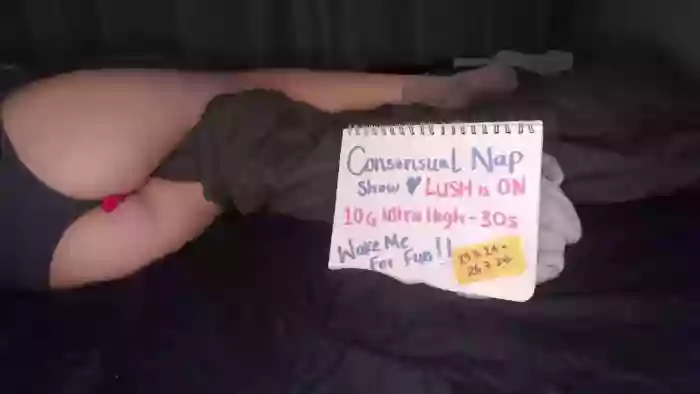 Consensual Nap
Show ♥ LUSH is ON
10G Ultra High - 30s
Wake Me
For Fun!!